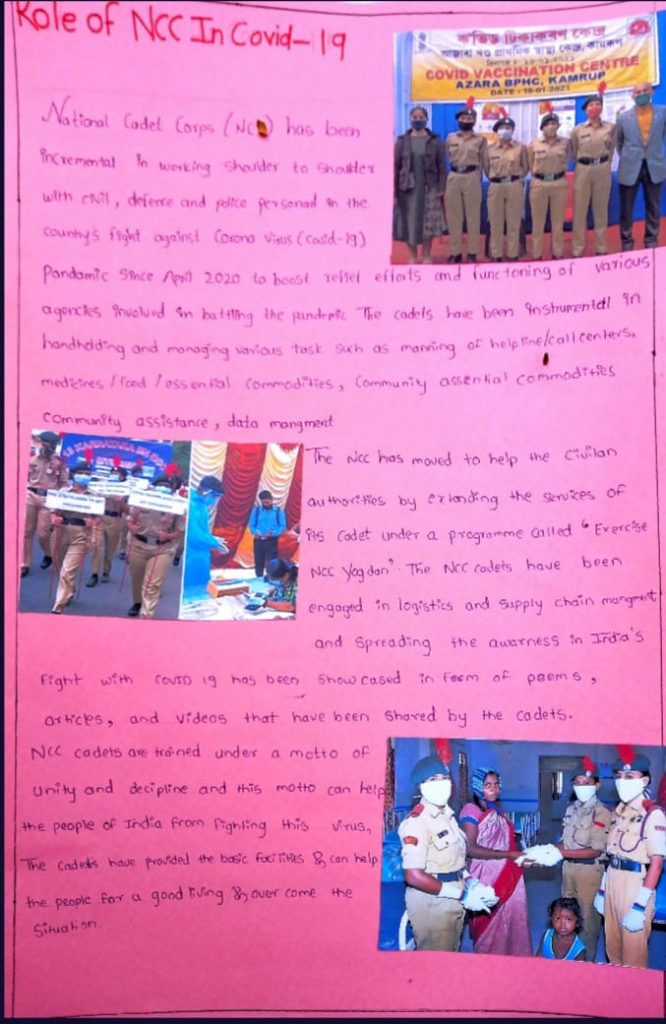 Role of NCC In Covid-19
কভিড টিকাকৰণ কেন্দ্ৰ
আজাৰা খণ্ড প্ৰাথমিক স্বাস্থ্য কেন্দ্ৰ, কামৰূপ
COVID VACCINATION CENTRE
AZARA BPHC, KAMRUP
DATE : 16-01-2021
National Cadet Corps (NCC) has been
incremental in working shoulder to shoulder
with civil, defence and police personal in the
country's fight against Corona virus (Covid-19)
Pandamic Since April 2020 to boost relief efforts and functoning of various
agencies involved in battling the pandemic The cadets have been instrumental in
handholding and managing various task such as manning of helpline/call centers,
medicines / food / essential commodities, Community assential commodities
Community assistance, data mangment
The Ncc has moved to help the civilan
authorities by extanding the services of
its cadet under a programme called "Exercise
NCC Yagdan". The NCC cadets have been
engaged in logistics and supply chain mangment
and spreading the awarness in India's
fight with COVID 19 has been showcased in form of poems,
articles, and videos that have been shared by the cadets.
NCC cadets are trained under a motto of
unity and decipline and this motto can help
the people of India from fighting this virus.
The cadets have provided the basic facilities & can help
the people for a good living & over come the
situation.